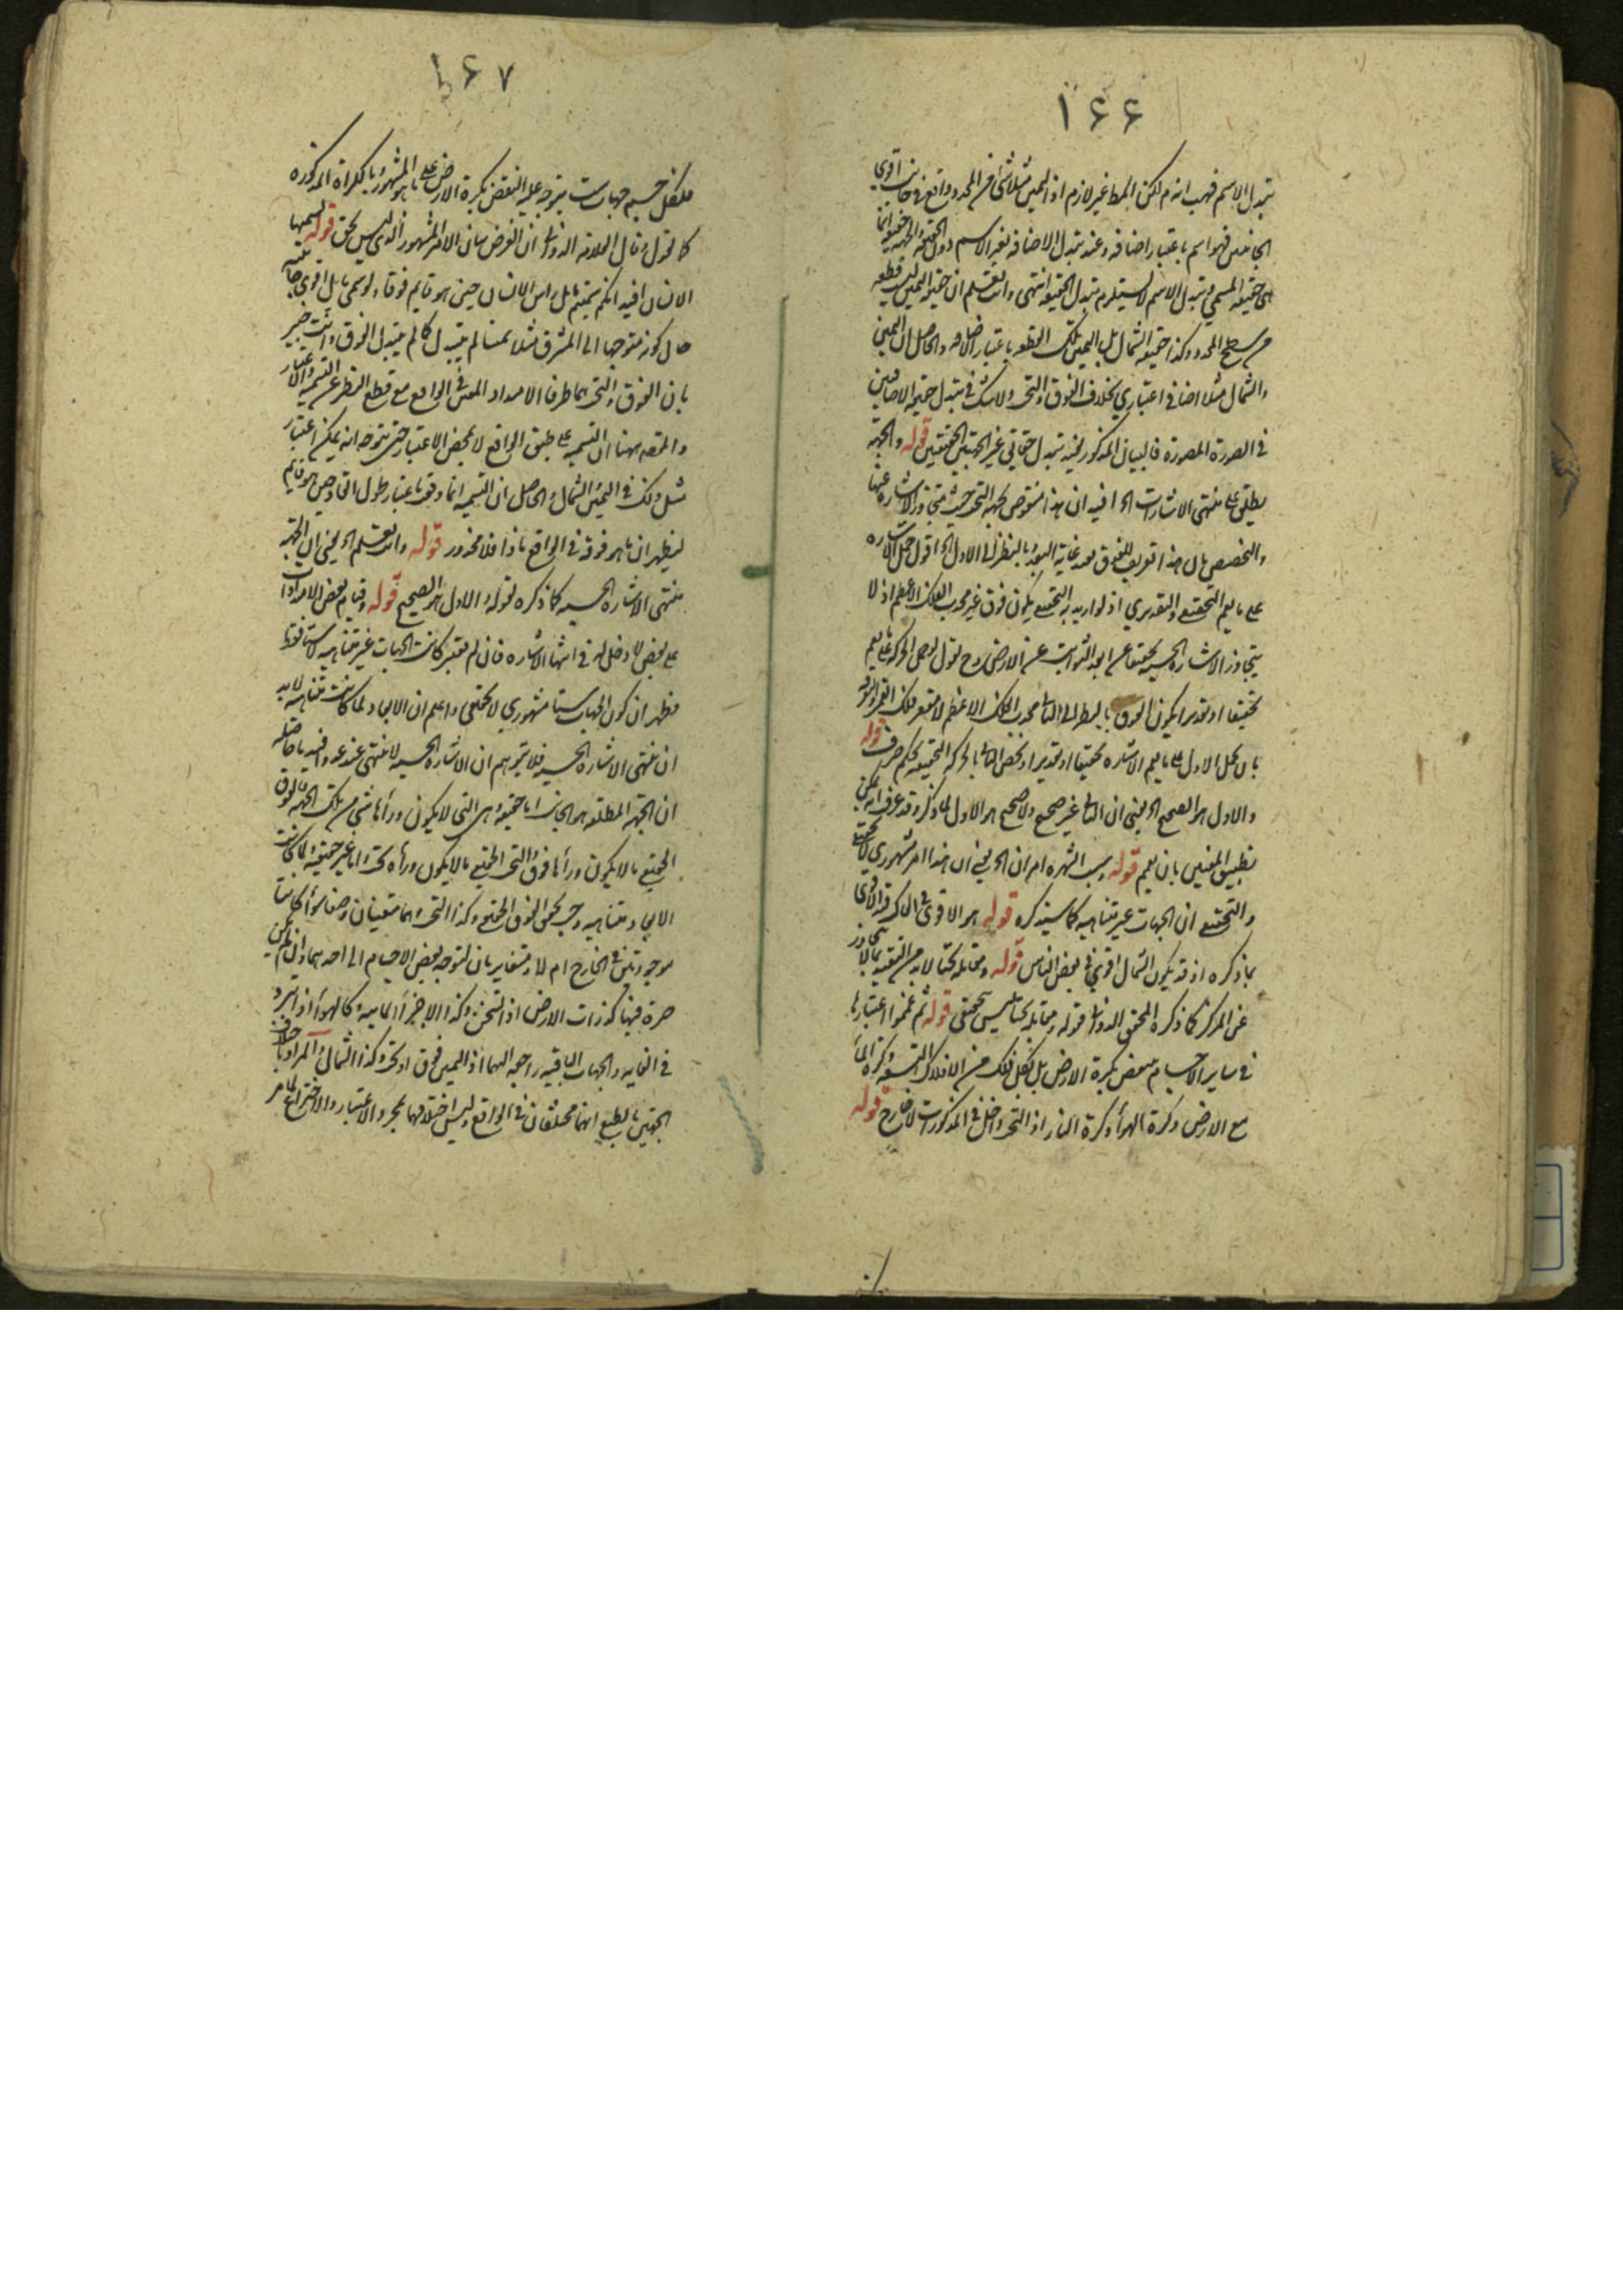 ۱۶۶
تبدل الاسم فهب انه م لكن المط غير لازم اذ اليمين مثلا شئ آخر المحدد واقع في جانب اقوى
الجانبين فهو اسم باعتبار اضافة وعند تبدل الاضافة يتغير الاسم دون الحقيقة والجهة
هى حقيقة المسمى وتبدل الاسم لا يستلزم تبدل الحقيقة انتهى وانت تعلم ان حقيقة اليمين ليست قطعة
من سطح المحدد وكذا حقيقة الشمال بل اليمين تلك القطعة باعتبار اضافة والحاصل ان اليمين
والشمال مثلا اضافى اعتبارى بخلاف الفوق والتحت ولا شك فى تبدل حقيقة الاضافيين
فى الصورة المصورة فالبيان المذكور يفيد تبدل حقايق غير الجهتين الحقيقيين قوله والجهة
يطلق على منتهى الاشارات الخ فيه ان هذا منقوض بجهة التحت حيث يتجاوز الاشارة عنها
والتخصيص بان هذا تعريف للفوق بعيد غاية البعد بالنظر الى الاول الخ اقول حمل الاشارة
على ما يعم التحقيقى والتقديرى اذ لو اريد به التحقيقى يكون فوق غير محدب الفلك الاعظم اذ لا
يتجاوز الاشارة الحسية تحقيقا عن ابعد الثوابت عن الارض وح نقول لو حمل الحركة على ما يعم
تحقيقا او تقديرا يكون الفوق بالنظر الى الثانى محدب الفلك الاعظم لا مقعر فلك القمر
بان حمل الاول على ما يعم الاشارة تحقيقا او تقديرا وتخصص الثانى بالحركة التحقيقية تحكم صرف قوله
والاول هو الصحيح الخ يعنى ان الثانى غير صحيح ولا صحيح هو الاول لما ذكر وقد عرفت انه يمكن
تطبيق المعنيين بان يعم قوله وسبب الشهرة امران الخ يعنى ان هذا امر مشهورى لا تحقيقى
والتحقيقى ان الجهات غير متناهية كما سيذكره قوله هو الاقوى فى الاكثر قيد الاقوى
بما ذكره اذ قد يكون الشمال اقوى فى بعض الناس قوله ومقابله تحتا لابد من التقييد بما لا يتجاوز
عن المركز كما ذكره المحقق الدوانى قوله ومقابله تحتا ليس بتحقيق قوله ثم عمموا اعتبارها
فى ساير الاجسام ينتقض بكرة الارض بل بكل فلك من الافلاك التسعة وكرة الماء
مع الارض وكرة الهواء وكرة النار اذ التحت داخل فى المذكورات لا خارج قوله
۱۶۷
فلكل جسم جهات ست يتوجه عليه النقض بكرة الارض على ما هو المشهور بالكرات المذكورة
كما نقول وقال العلامة الدوانى ان الغرض بيان الامر المشهور الذى ليس بحق قوله يسميها
الانسان الخ فيه انكم سميتم ما يلى راس الانسان حين هو قايم فوقا ولو سمى ما يلى اقوى جانبيه
حال كونه متوجها الى المشرق مثلا يمينا لم يتبدل كما لم يتبدل الفوق وانت خبير
بان الفوق والتحت هما طرفا الامتداد المعين فى الواقع مع قطع النظر عن التسمية والاعتبار
والمقصد ههنا ان التسمية على طبق الواقع لا بمحض الاعتبار حتى يتوجه انه يمكن اعتبار
مثل ذلك فى اليمين والشمال والحاصل ان التسمية انما وقع باعتبار طول القامة وحين هو قايم
ليظهر ان ما هو فوقه فى الواقع ماذا فلا محذور قوله وانت تعلم الخ يعنى ان الجهة
منتهى الاشارة الحسية كما ذكره بقوله والاول هو الصحيح قوله وقيام بعض الامتدادات
على بعض لا دخل له فى انتهاء الاشارة فان لم يعتبر كانت الجهات غير متناهية لا ستا فقط
فظهر ان كون الجهات ستا مشهورى لا تحقيقى واعلم ان الابعاد لما كانت متناهية لابد
ان ينتهى الاشارة الحسية فلا يتوهم ان الاشارة الحسية لا تنتهى عند حد
ان الجهة المطلقة هو الجانب اما حقيقة وهى التى لا يكون وراءها شئ من تلك الجهة فالفوق
الحقيقى ما لا يكون وراءها فوق والتحت الحقيقى ما لا يكون وراءه تحت واما غير حقيقية لما كانت
الابعاد متناهية وجب تحقق الفوق الحقيقى وكذا التحت وهما متعينان وضعا سواء كانتا
موجودتين فى الخارج ام لا ومتغايرتان لتوجه بعض الاجسام الى احدهما دون
مرة فيها كذرات الارض اذا تسخن وكذا الاجزاء المائية وكالهواء اذا ابرد
فى الغاية والجهات الباقية راجعة اليهما اذ اليمين فوق او تحت وكذا الشمال والمراد باختلاف
الجهتين بالطبع انهما مختلفتان فى الواقع وليس اختلافهما بمجرد الاعتبار والاختراع